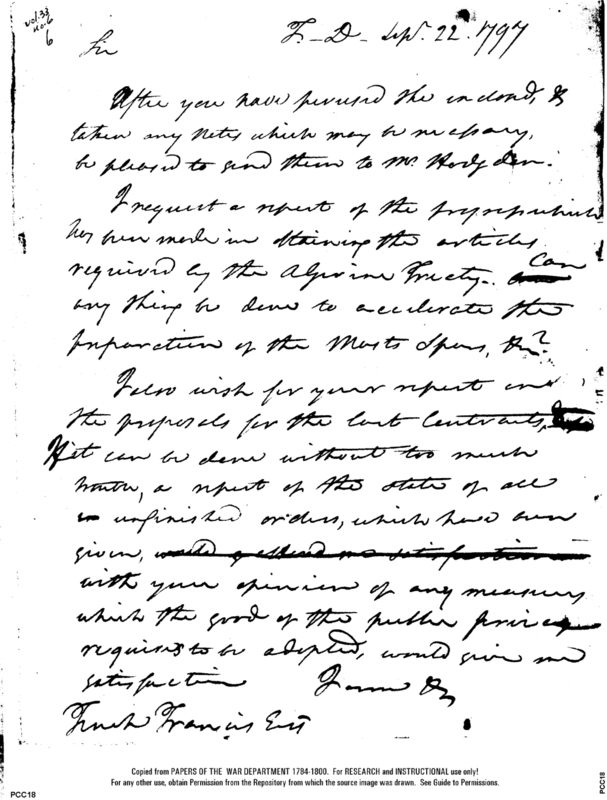 vol. 33
no. 6
6
T. D. Sepr. 22. 1797
Sir
After you have perused the inclosed, &
taken any notes which may be necessary,
be pleased to send them to Mr. Hodgden.
I request a report of the progress which
has been made in obtaining the articles
required by the Algerine Treaty. Can
any thing be done to accelerate the
preparation of the Masts Spars, &c?
I also wish for your report on
the proposals for the last Contracts,
If it can be done without too much
trouble, a report of the state of all
unfinished orders, which have been
given, would afford me satisfaction
with your opinion of any measures
which the good of the public service
requires to be adopted, would give me
satisfaction I am &c
Tench Francis Esq
Copied from PAPERS OF THE WAR DEPARTMENT 1784-1800. For RESEARCH and INSTRUCTIONAL use only!
For any other use, obtain Permission from the Repository from which the source image was drawn. See Guide to Permissions.
PCC18
PCC18